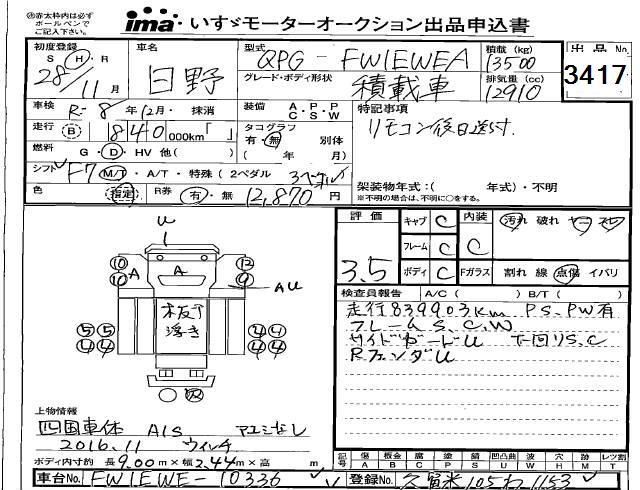 ㊟赤太枠内は必ず
ボールペンで
ご記入下さい。
ima いすゞモーターオークション出品申込書
初度登録 車名 型式 QPG-FW1EWEA 積載(kg) 13500 出品No
S・H・R 28年11月 日野 グレード・ボディ形状 積載車 排気量(cc) 12910 3417
車検 R-8年12月・抹消 装備 A・P・P C・S・W 特記事項
走行 B 840 000km「 」 タコグラフ 有・無 別体 リモコン後日送付.
燃料 G・D・HV 他( ) ( 年 月)
シフト F7 M/T・A/T・特殊(2ペダル 3ペダル) 架装物年式:( 年式)・不明
色 指定 R券 有・無 12,870円 ※不明の場合は、不明に○をする。
評価 キャブ C 内装 汚れ 破れ ヤニ
フレーム C C
3.5 ボディ C Fガラス 割れ 線 点傷 イバリ
検査員報告 A/C( ) B/T( )
走行839903km PS.PW有
フレームS.C.W
サイドガードU 下回りS.C
RフェンダU
U
10 12
10 A A 9
AU
板下
浮き
5 5 4 4
4 4 4 4
上物情報
四国車体 AIS アユミなし
2016.11 ウィンチ
ボディ内寸約 長9.00m×幅2.44m×高 m
記号 傷 板金 腐 塗 錆 凹凸曲 W W ヒビ穴 跡 レツ割
A B P C P S U W H X M T
車台No. FW1EWE-10336 登録No. 久留米105わ1153